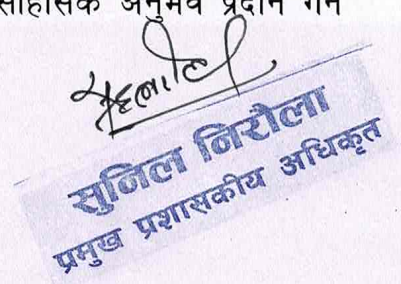 साहसिक अनुभव प्रदान गर्न
सुनिल निरौला
प्रमुख प्रशासकीय अधिकृत